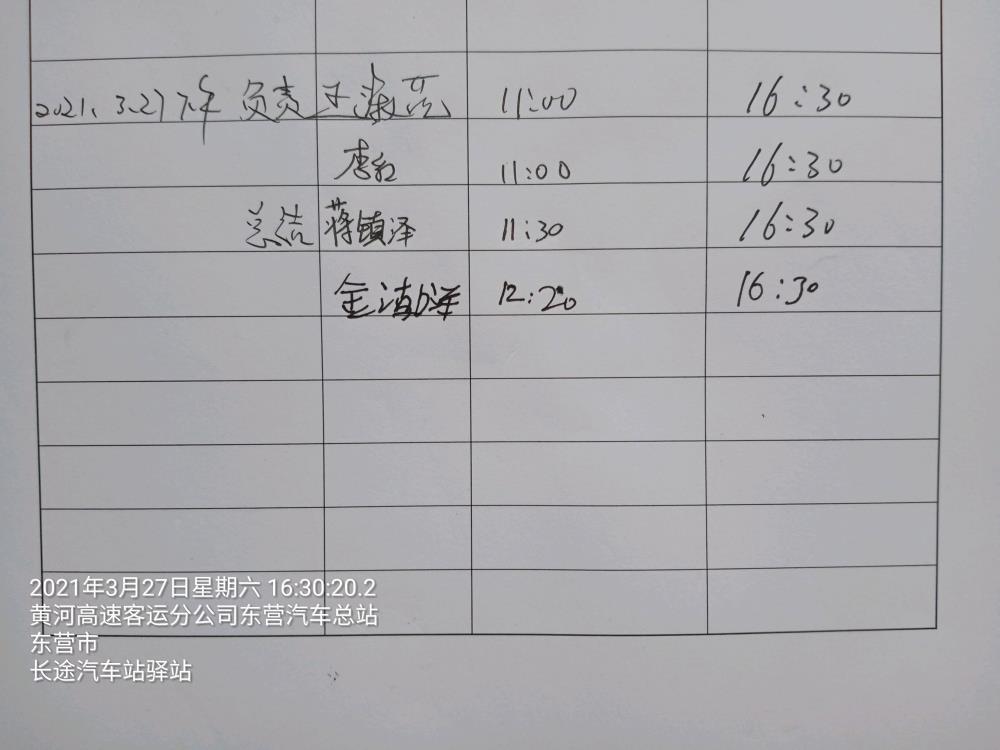 2021.3.27下午 负责 王淑芸 11:00 16:30
李红 11:00 16:30
总结 蒋镇泽 11:30 16:30
金 12:20 16:30
2021年3月27日星期六 16:30:20.2
黄河高速客运分公司东营汽车总站
东营市
长途汽车站驿站